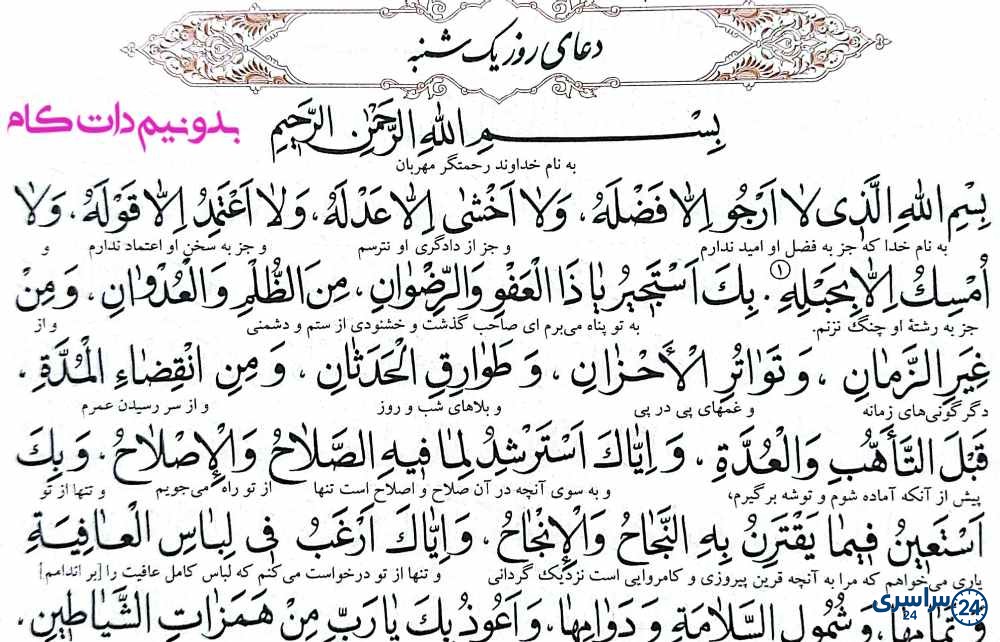 دعای روز یک شنبه
بدونیم دات کام
بِسْمِ اللهِ الرَّحْمٰنِ الرَّحِيمِ
به نام خداوند رحمتگر مهربان
بِسْمِ اللهِ الَّذِی لاٰ اَرْجُو اِلاّٰ فَضْلَهُ، وَلاٰ اَخْشىٰ اِلاّٰ عَدْلَهُ، وَلاٰ اَعْتَمِدُ اِلاّٰ قَوْلَهُ، وَلاٰ
به نام خدا که جز به فضل او امید ندارم و جز از دادگری او نترسم و جز به سخن او اعتماد ندارم و
اُمْسِكُ اِلاّٰ بِحَبْلِهِ. بِكَ اَسْتَجِيرُ يٰا ذَا الْعَفْوِ وَالرِّضْوٰانِ، مِنَ الظُّلْمِ وَالْعُدْوٰانِ، وَمِنْ
جز به رشتهٔ او چنگ نزنم. به تو پناه می‌برم ای صاحب گذشت و خشنودی از ستم و دشمنی و از
غِيَرِ الزَّمٰانِ، وَ تَوٰاتُرِ الْأَحْزٰانِ، وَ طَوٰارِقِ الْحَدَثٰانِ، وَ مِنِ انْقِضٰاءِ الْمُدَّةِ،
دگرگونی‌های زمانه و غمهای پی در پی و بلاهای شب و روز و از سر رسیدن عمرم
قَبْلَ التَّأَهُّبِ وَالْعُدَّةِ، وَ اِيّٰاكَ اَسْتَرْشِدُ لِمٰا فِيهِ الصَّلاٰحُ وَالْإِصْلاٰحُ، وَ بِكَ
پیش از آنکه آماده شوم و توشه برگیرم، و به سوی آنچه در آن صلاح و اصلاح است تنها از تو راه می‌جویم و تنها از تو
اَسْتَعِينُ فِيمٰا يَقْتَرِنُ بِهِ النَّجٰاحُ وَالْإِنْجٰاحُ، وَ اِيّٰاكَ اَرْغَبُ فِی لِبٰاسِ الْعٰافِيَةِ
یاری می‌خواهم که مرا به آنچه قرین پیروزی و کامروایی است نزدیک گردانی و تنها از تو درخواست می‌کنم که لباس کامل عافیت را [بر اندامم]
وَ تَمٰامِهٰا، وَ شُمُولِ السَّلاٰمَةِ وَ دَوٰامِهٰا، وَ اَعُوذُ بِكَ يٰا رَبِّ مِنْ هَمَزٰاتِ الشَّيٰاطِينِ،
سراسری 24
24